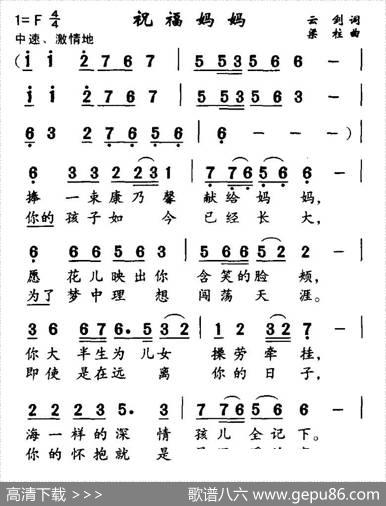 1=F 4/4 祝福妈妈 云剑词
中速、激情地 梁柱曲
(i i 2 7 6 7 | 5 5 5 3 5 6 7 |
i i 2 7 6 7 | 5 5 5 3 5 6 7 |
6 3 2 7 6 5 6 | 6 - - - )|
6 3 3 2 2 3 1 | 7 7 6 5 6 - |
捧一束康乃馨 献给妈妈,
你的孩子如今 已经长大,
6 6 6 6 5 6 3 | 5 6 6 5 2 2 - |
愿花儿映出你 含笑的脸颊,
为了梦中理想 闯荡天涯。
3 6 6 7 6. 5 3 2 | 1 2 3 2 7 - |
你大半生为儿女 操劳牵挂,
即使是在远离 你的日子,
2 2 2 3 5. 3 | 7 7 6 5 6 6 - |
海一样的深情 孩儿全记下。
你的怀抱就是
高清下载 >>> 歌谱八六 www.gepu86.com